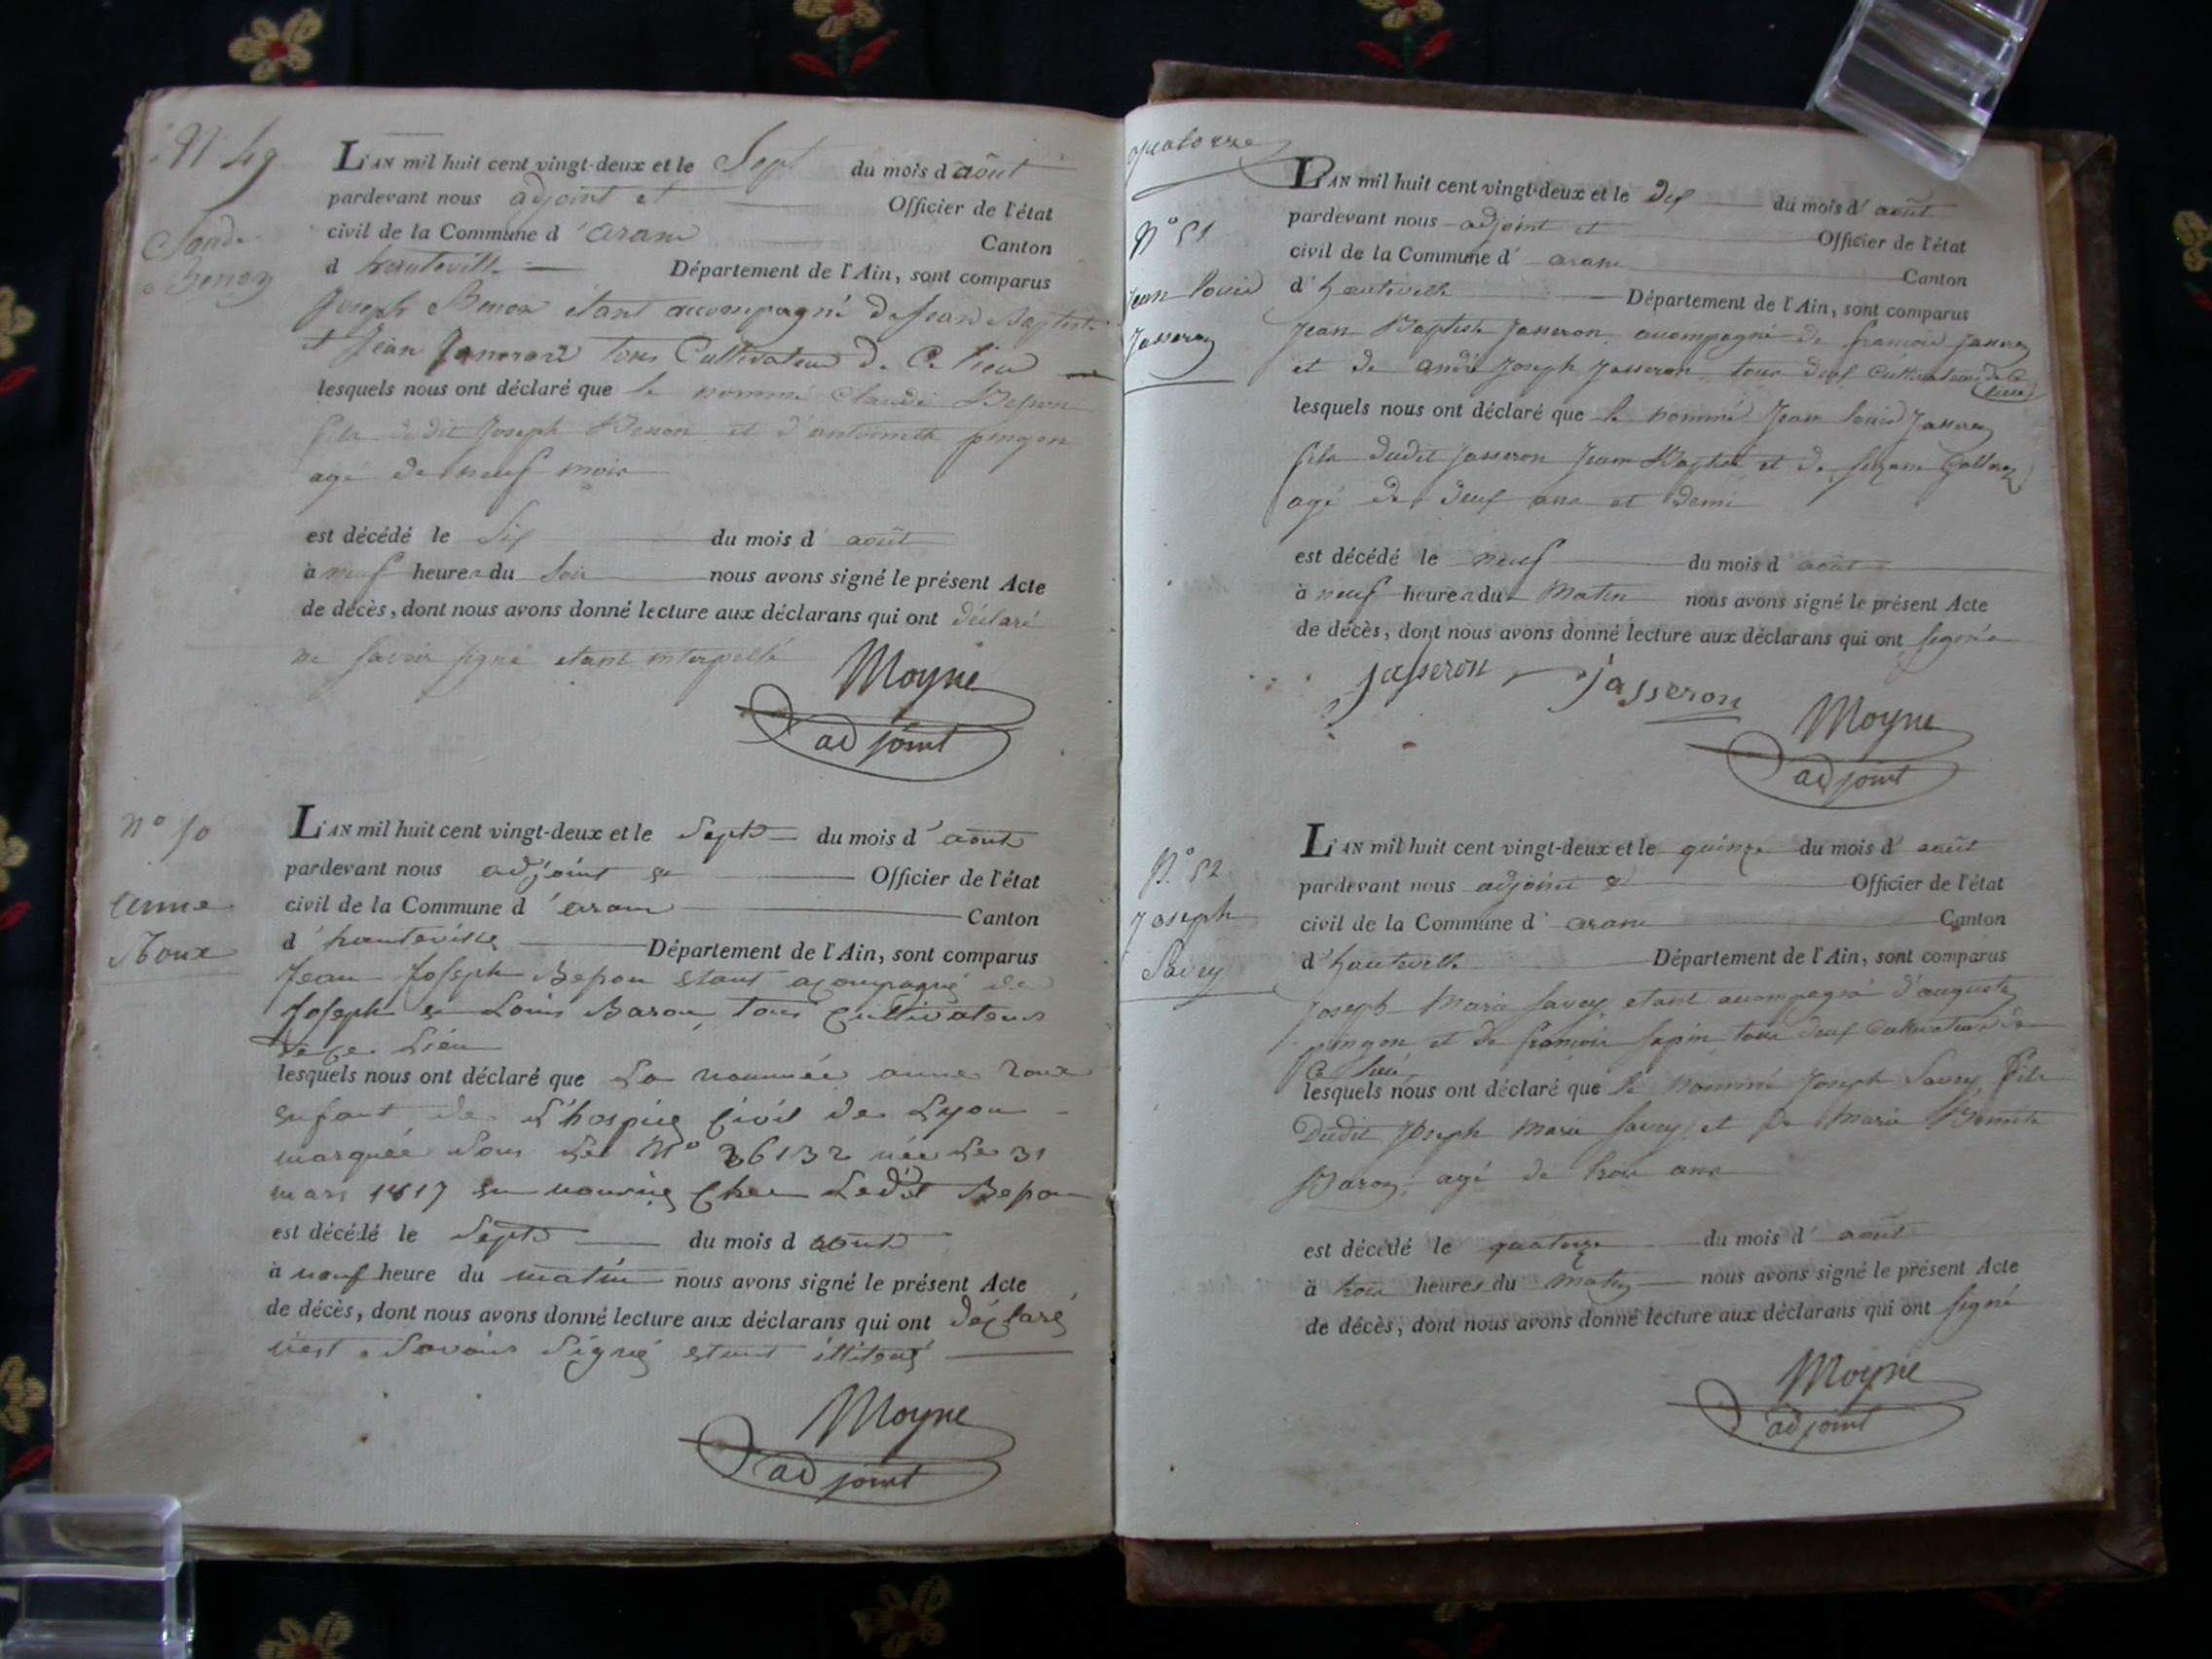 N° 49
Claude
Benon
L'AN mil huit cent vingt-deux et le Sept du mois d août
pardevant nous adjoint et Officier de l'état
civil de la Commune d' aranc Canton
d hauteville Département de l'Ain, sont comparus
Joseph Benon étant accompagné de Jean Baptiste
et Jean tous Cultivateur de Ce lieu
lesquels nous ont déclaré que le nommé Claude Besson
fils dudit Joseph Benon et d'antoinette pingon
agé de neuf mois
est décédé le Six du mois d' août
à neuf heures du Soir nous avons signé le présent Acte
de décès, dont nous avons donné lecture aux déclarans qui ont déclaré
ne savoir signé etant interpellé
Moyne
adjoint
N° 50
anne
Roux
L'AN mil huit cent vingt-deux et le Sept du mois d' août
pardevant nous adjoint et Officier de l'état
civil de la Commune d' aranc Canton
d' hauteville Département de l'Ain, sont comparus
Jean Joseph Besson etant acompagné de
Joseph et Louis Baron, tous Cultivateurs
de ce Lieu
lesquels nous ont déclaré que La nommée anne roux
enfant de L'hospice Civil de Lyon
marquée Sous Le N° 36132 née Le 31
mars 1817 en nourrice Chez Ledit Besson
est décédé le Sept du mois d août
à neuf heure du matin nous avons signé le présent Acte
de décès, dont nous avons donné lecture aux déclarans qui ont déclaré
Savoir Signé etant
Moyne
adjoint
quatorze
N° 51
Jean louis
Jasseron
L'AN mil huit cent vingt-deux et le Dix du mois d' août
pardevant nous adjoint et Officier de l'état
civil de la Commune d' aranc Canton
d' hauteville Département de l'Ain, sont comparus
Jean Baptiste Jasseron, acompagné de francois Jasseron
et de andré Joseph Jasseron tous deux Cultivateurs de Ce
lieu
lesquels nous ont déclaré que le nommé Jean louis Jasseron
fils dudit Jasseron Jean Baptiste et de
agé de deux ans et demi
est décédé le neuf du mois d' août
à neuf heures du Matin nous avons signé le présent Acte
de décès, dont nous avons donné lecture aux déclarans qui ont signé
jasseron jasseron
Moyne
adjoint
N° 52
Joseph
Savey
L'AN mil huit cent vingt-deux et le quinze du mois d' août
pardevant nous adjoint et Officier de l'état
civil de la Commune d' aranc Canton
d' hauteville Département de l'Ain, sont comparus
Joseph Marie Savey, etant acompagné d'auguste
pingon et de francois Sapin tous deux Cultivateur de
Ce lieu
lesquels nous ont déclaré que le nommé Joseph Savey, fils
Dudit Joseph Marie Savey, et de Marie Benoite
Baron, agé de trois ans
est décédé le quatorze du mois d' août
à trois heures du matin nous avons signé le présent Acte
de décès, dont nous avons donné lecture aux déclarans qui ont signé
Moyne
adjoint